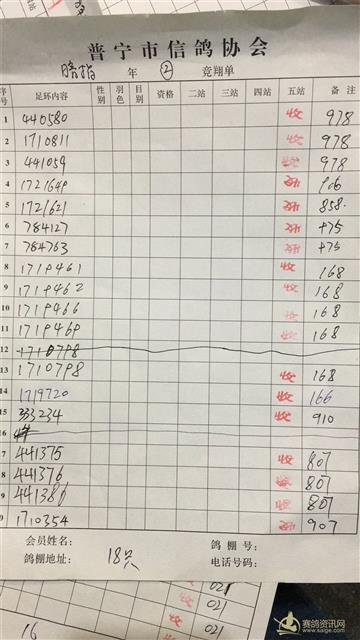 普宁市信鸽协会
年 ② 竞翔单
序号 足环内容 性别 羽色 目别 资格 二站 三站 四站 五站 备注
1 440580 收 978
2 1710811 收 978
3 441059 收 978
4 1721649 906
5 1721621 858
6 784127 875
7 784763 875
8 1719461 收 168
9 1719462 收 168
10 1719466 收 168
11 1719469 收 168
12 1710798
13 1710798 收 168
14 1719720 收 166
15 333234 收 910
16
7 441375 收 807
8 441376 收 807
9 441386 收 807
0 1710354 907
会员姓名： 鸽棚号：
鸽棚地址： 18只 电话号码：
021
021
16 021
赛鸽资讯网
www.saige.com